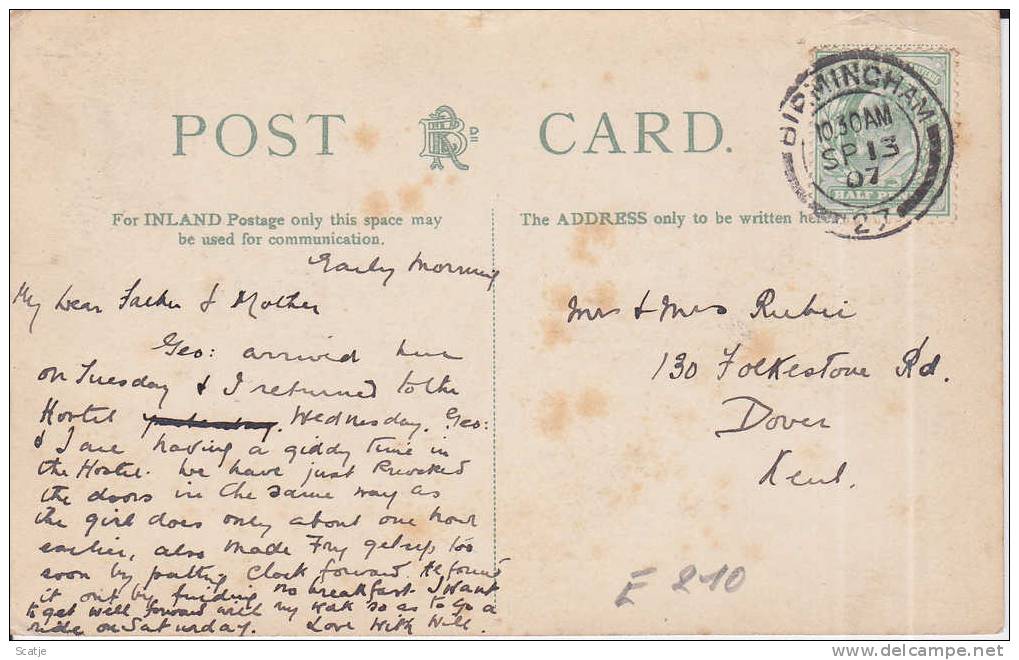 POST CARD.
BIRMINGHAM
10.30AM
SP 13
07
27
HALF PE
For INLAND Postage only this space may
be used for communication.
The ADDRESS only to be written here
Early Morning
My Dear Father & Mother
Geo: arrived here
on Tuesday & I returned to the
Hostel yesterday, Wednesday. Geo:
& I are having a giddy time in
the Hostel. We have just knocked
the doors in the same way as
the girl does only about one hour
earlier, also made Fry get up too
soon by putting clock forward. He found
it out by finding no breakfast. I want
to get well forward with my work so as to go a
ride on Saturday. Love With Will.
Mr & Mrs
130 Folkestone Rd.
Dover
Kent.
E 210
Scatje